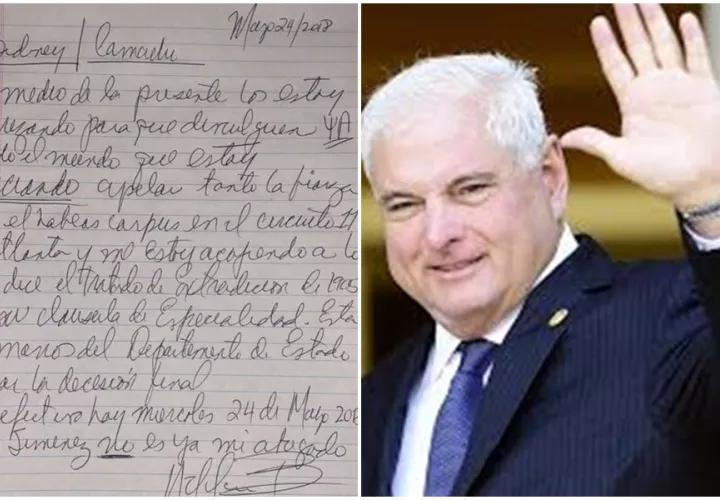 Mayo 24/2018
Sidney / Camacho
medio de la presente los estoy
rizando para que divulguen YA
do el mundo que estoy
ciando apelar tanto la fianza
el habeas corpus en el circuito 11
tlanta y me estoy acogiendo a lo
dice el tratado de extradicion de 1905
su clausula de Especialidad. Esta
manos del Departamento de Estado
ar la decesión final
efectivo hoy miercoles 24 de Mayo 2018
Jimenez no es ya mi abogado